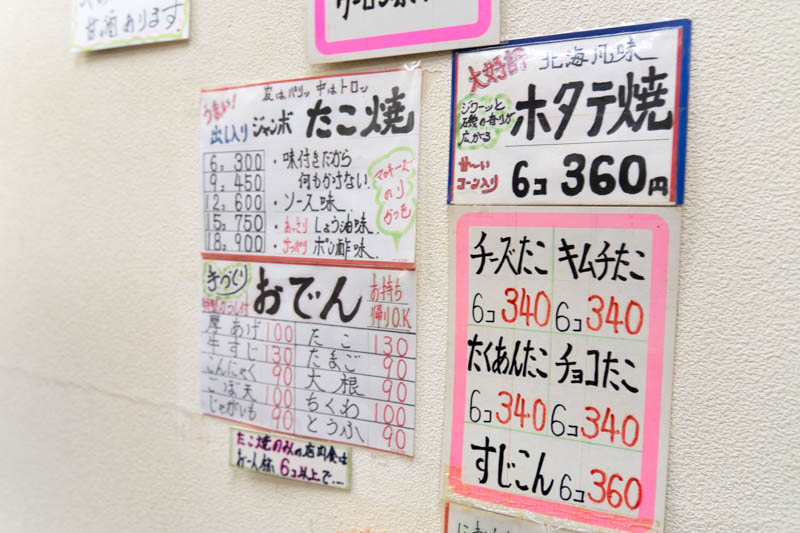 甘酒あります。
皮はパリッ中はトロッ
うまい!
出し入り ジャンボ たこ焼
6コ 300
9コ 450
12コ 600
15コ 750
18コ 900
・味付きだから
何もかけない。
・ソース味
・あっさり しょう油味
・サッパリ ポン酢味
マッキーズ
のり
かつを
手づくり おでん お持ち
帰りO.K
厚あげ 100
牛すじ 130
こんにゃく 90
ごぼ天 100
じゃがいも 90
たこ 130
たまご 90
大根 90
ちくわ 100
とうふ 90
たこ焼のみの店内食は
お一人様 6コ以上で…
大好評 北海風味
ジワーッと
磯の香りが
広がる
ホタテ焼
甘〜い
コーン入り
6コ 360円
チーズたこ
6コ 340
キムチたこ
6コ 340
たくあんたこ
6コ 340
チョコたこ
6コ 340
すじこん 6コ 360